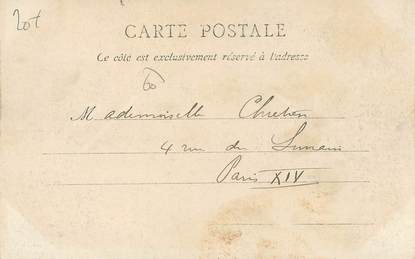 20t
CARTE POSTALE
Ce côté est exclusivement réservé à l'adresse
60
Mademoiselle Chretien
4 rue du
Paris XIV